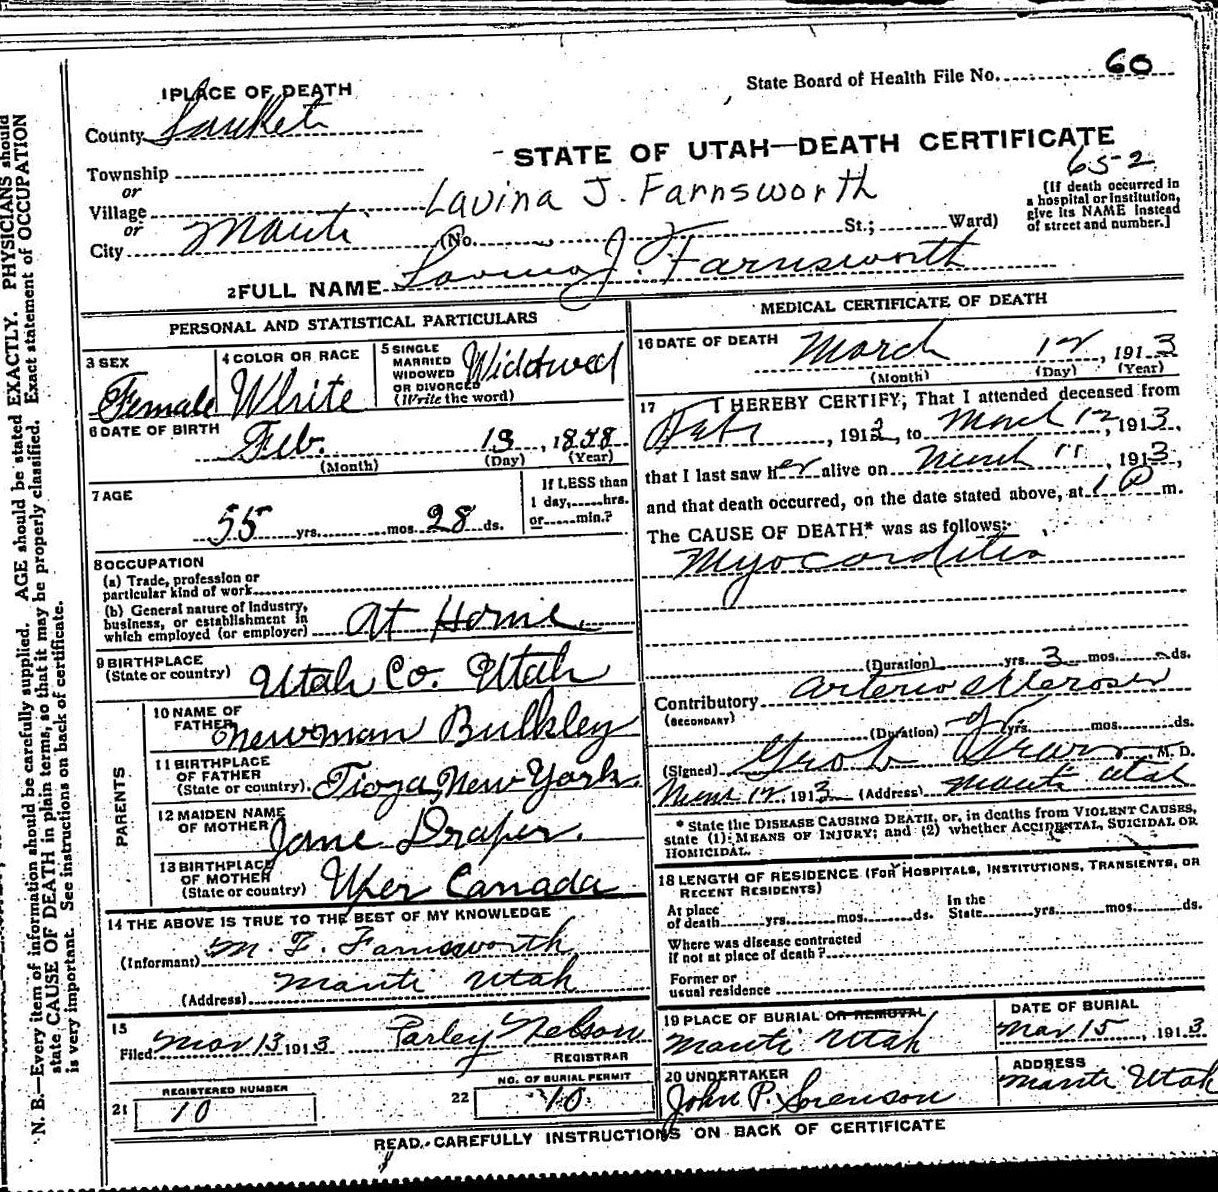 State Board of Health File No. 60
1 PLACE OF DEATH
County Sanpete
STATE OF UTAH—DEATH CERTIFICATE
65-2
Township
or
Village
Lavina J. Farnsworth
or
City Manti (No. St.; Ward)
[If death occurred in
a hospital or institution,
give its NAME instead
of street and number.]
2 FULL NAME Lavina J. Farnsworth
PERSONAL AND STATISTICAL PARTICULARS
3 SEX
Female
4 COLOR OR RACE
White
5 SINGLE
MARRIED
WIDOWED
OR DIVORCED
(Write the word)
Widowed
6 DATE OF BIRTH
Feb. 13, 1858
(Month) (Day) (Year)
7 AGE
55 yrs. mos. 28 ds.
If LESS than
1 day, hrs.
or min.?
8 OCCUPATION
(a) Trade, profession or
particular kind of work
(b) General nature of Industry,
business, or establishment in
which employed (or employer) At Home.
9 BIRTHPLACE
(State or country) Utah Co. Utah
PARENTS
10 NAME OF
FATHER Newman Bulkley
11 BIRTHPLACE
OF FATHER
(State or country) Tioga, New York.
12 MAIDEN NAME
OF MOTHER Jane Draper.
13 BIRTHPLACE
OF MOTHER
(State or country) Uper Canada
14 THE ABOVE IS TRUE TO THE BEST OF MY KNOWLEDGE
(Informant) M. F. Farnsworth
(Address) Manti Utah
15
Filed Mar 13 1913 Parley Nelson
REGISTRAR
21 REGISTERED NUMBER
10
22 NO. OF BURIAL PERMIT
10
MEDICAL CERTIFICATE OF DEATH
16 DATE OF DEATH March 12, 1913
(Month) (Day) (Year)
17 I HEREBY CERTIFY, That I attended deceased from
, 191 , to March 12, 1913,
that I last saw her alive on March 11, 1913,
and that death occurred, on the date stated above, at 1 P m.
The CAUSE OF DEATH* was as follows:
Myocarditis
(Duration) yrs. 3 mos. ds.
Contributory Arterio Sclerosis
(SECONDARY)
(Duration) yrs. mos. ds.
(Signed) M. D.
12, 1913 (Address) Manti Utah
* State the DISEASE CAUSING DEATH, or, in deaths from VIOLENT CAUSES,
state (1) MEANS OF INJURY; and (2) whether ACCIDENTAL, SUICIDAL OR
HOMICIDAL.
18 LENGTH OF RESIDENCE (FOR HOSPITALS, INSTITUTIONS, TRANSIENTS, OR
RECENT RESIDENTS)
At place
of death yrs. mos. ds.
In the
State yrs. mos. ds.
Where was disease contracted
if not at place of death?
Former or
usual residence
19 PLACE OF BURIAL OR REMOVAL
Manti Utah
DATE OF BURIAL
Mar 15, 1913
20 UNDERTAKER
John P. Sorenson
ADDRESS
Manti Utah
READ CAREFULLY INSTRUCTIONS ON BACK OF CERTIFICATE
N. B.—Every item of information should be carefully supplied. AGE should be stated EXACTLY. PHYSICIANS should
state CAUSE OF DEATH in plain terms, so that it may be properly classified. Exact statement of OCCUPATION
is very important. See instructions on back of certificate.